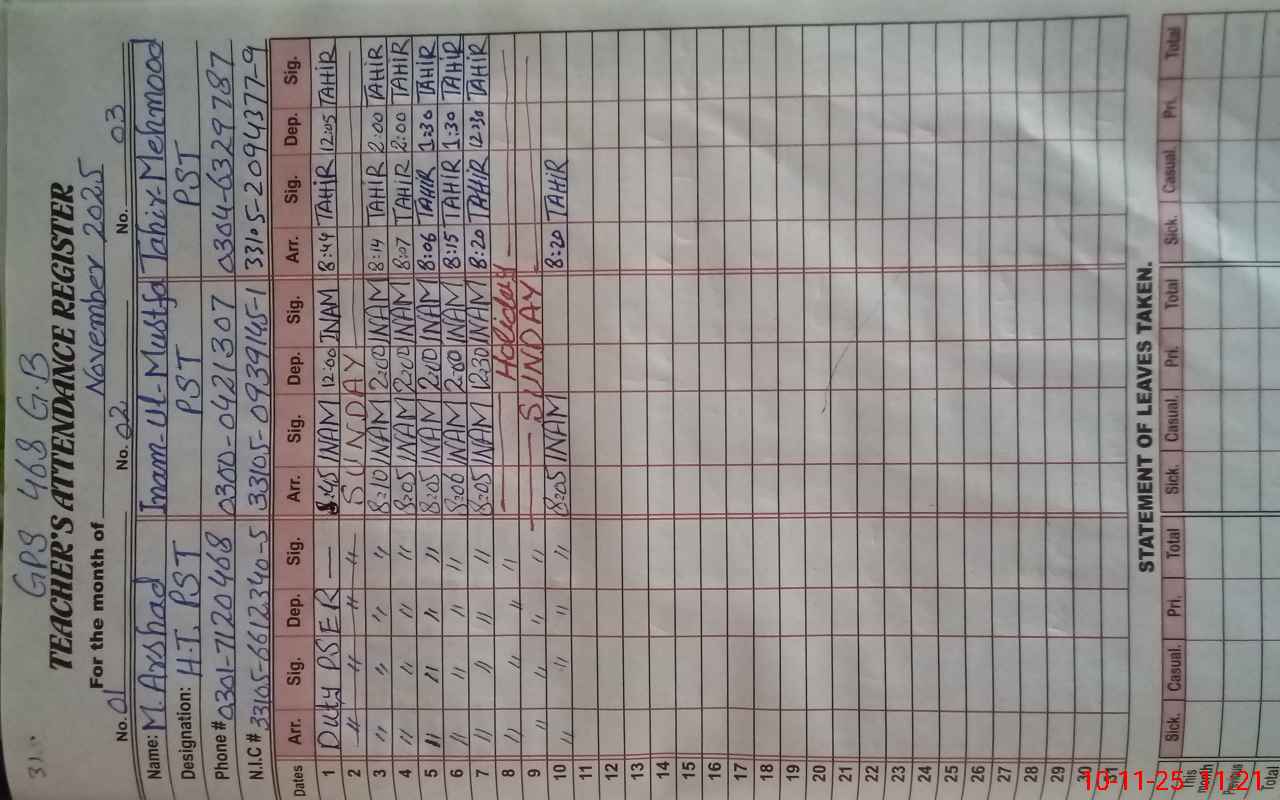 GPS 468 G.B
TEACHER'S ATTENDANCE REGISTER
For the month of November 2025
No. 01 No. 02 No. 03
Name: M. Arshad Inam-Ul-Mustfa Tahir Mehmood
Designation: H.T. PST PST PST
Phone # 0301-7120468 0300-0421307 0304-6329787
N.I.C # 33105-6612340-5 33105-0939145-1 33105-2094377-9
Dates Arr. Sig. Dep. Sig. Arr. Sig. Dep. Sig. Arr. Sig. Dep. Sig.
1 Duty PSER — 8:45 INAM 12:00 INAM 8:44 TAHIR 12:05 TAHIR
2 〃 〃 〃 〃 SUNDAY
3 〃 〃 〃 〃 8:10 INAM 2:00 INAM 8:14 TAHIR 2:00 TAHIR
4 〃 〃 〃 〃 8:05 INAM 2:00 INAM 8:07 TAHIR 2:00 TAHIR
5 〃 〃 〃 〃 8:05 INAM 2:00 INAM 8:06 TAHIR 1:30 TAHIR
6 〃 〃 〃 〃 8:06 INAM 2:00 INAM 8:15 TAHIR 1:30 TAHIR
7 〃 〃 〃 〃 8:05 INAM 12:30 INAM 8:20 TAHIR 12:30 TAHIR
8 〃 〃 〃 〃 Holiday
9 〃 〃 〃 〃 SUNDAY
10 〃 〃 〃 〃 8:05 INAM 8:20 TAHIR
11
12
13
14
15
16
17
18
19
20
21
22
23
24
25
26
27
28
29
30
31
STATEMENT OF LEAVES TAKEN.
Sick. Casual. Pri. Total Sick. Casual. Pri. Total Sick. Casual. Pri. Total
This month
Total
10-11-25 11:21